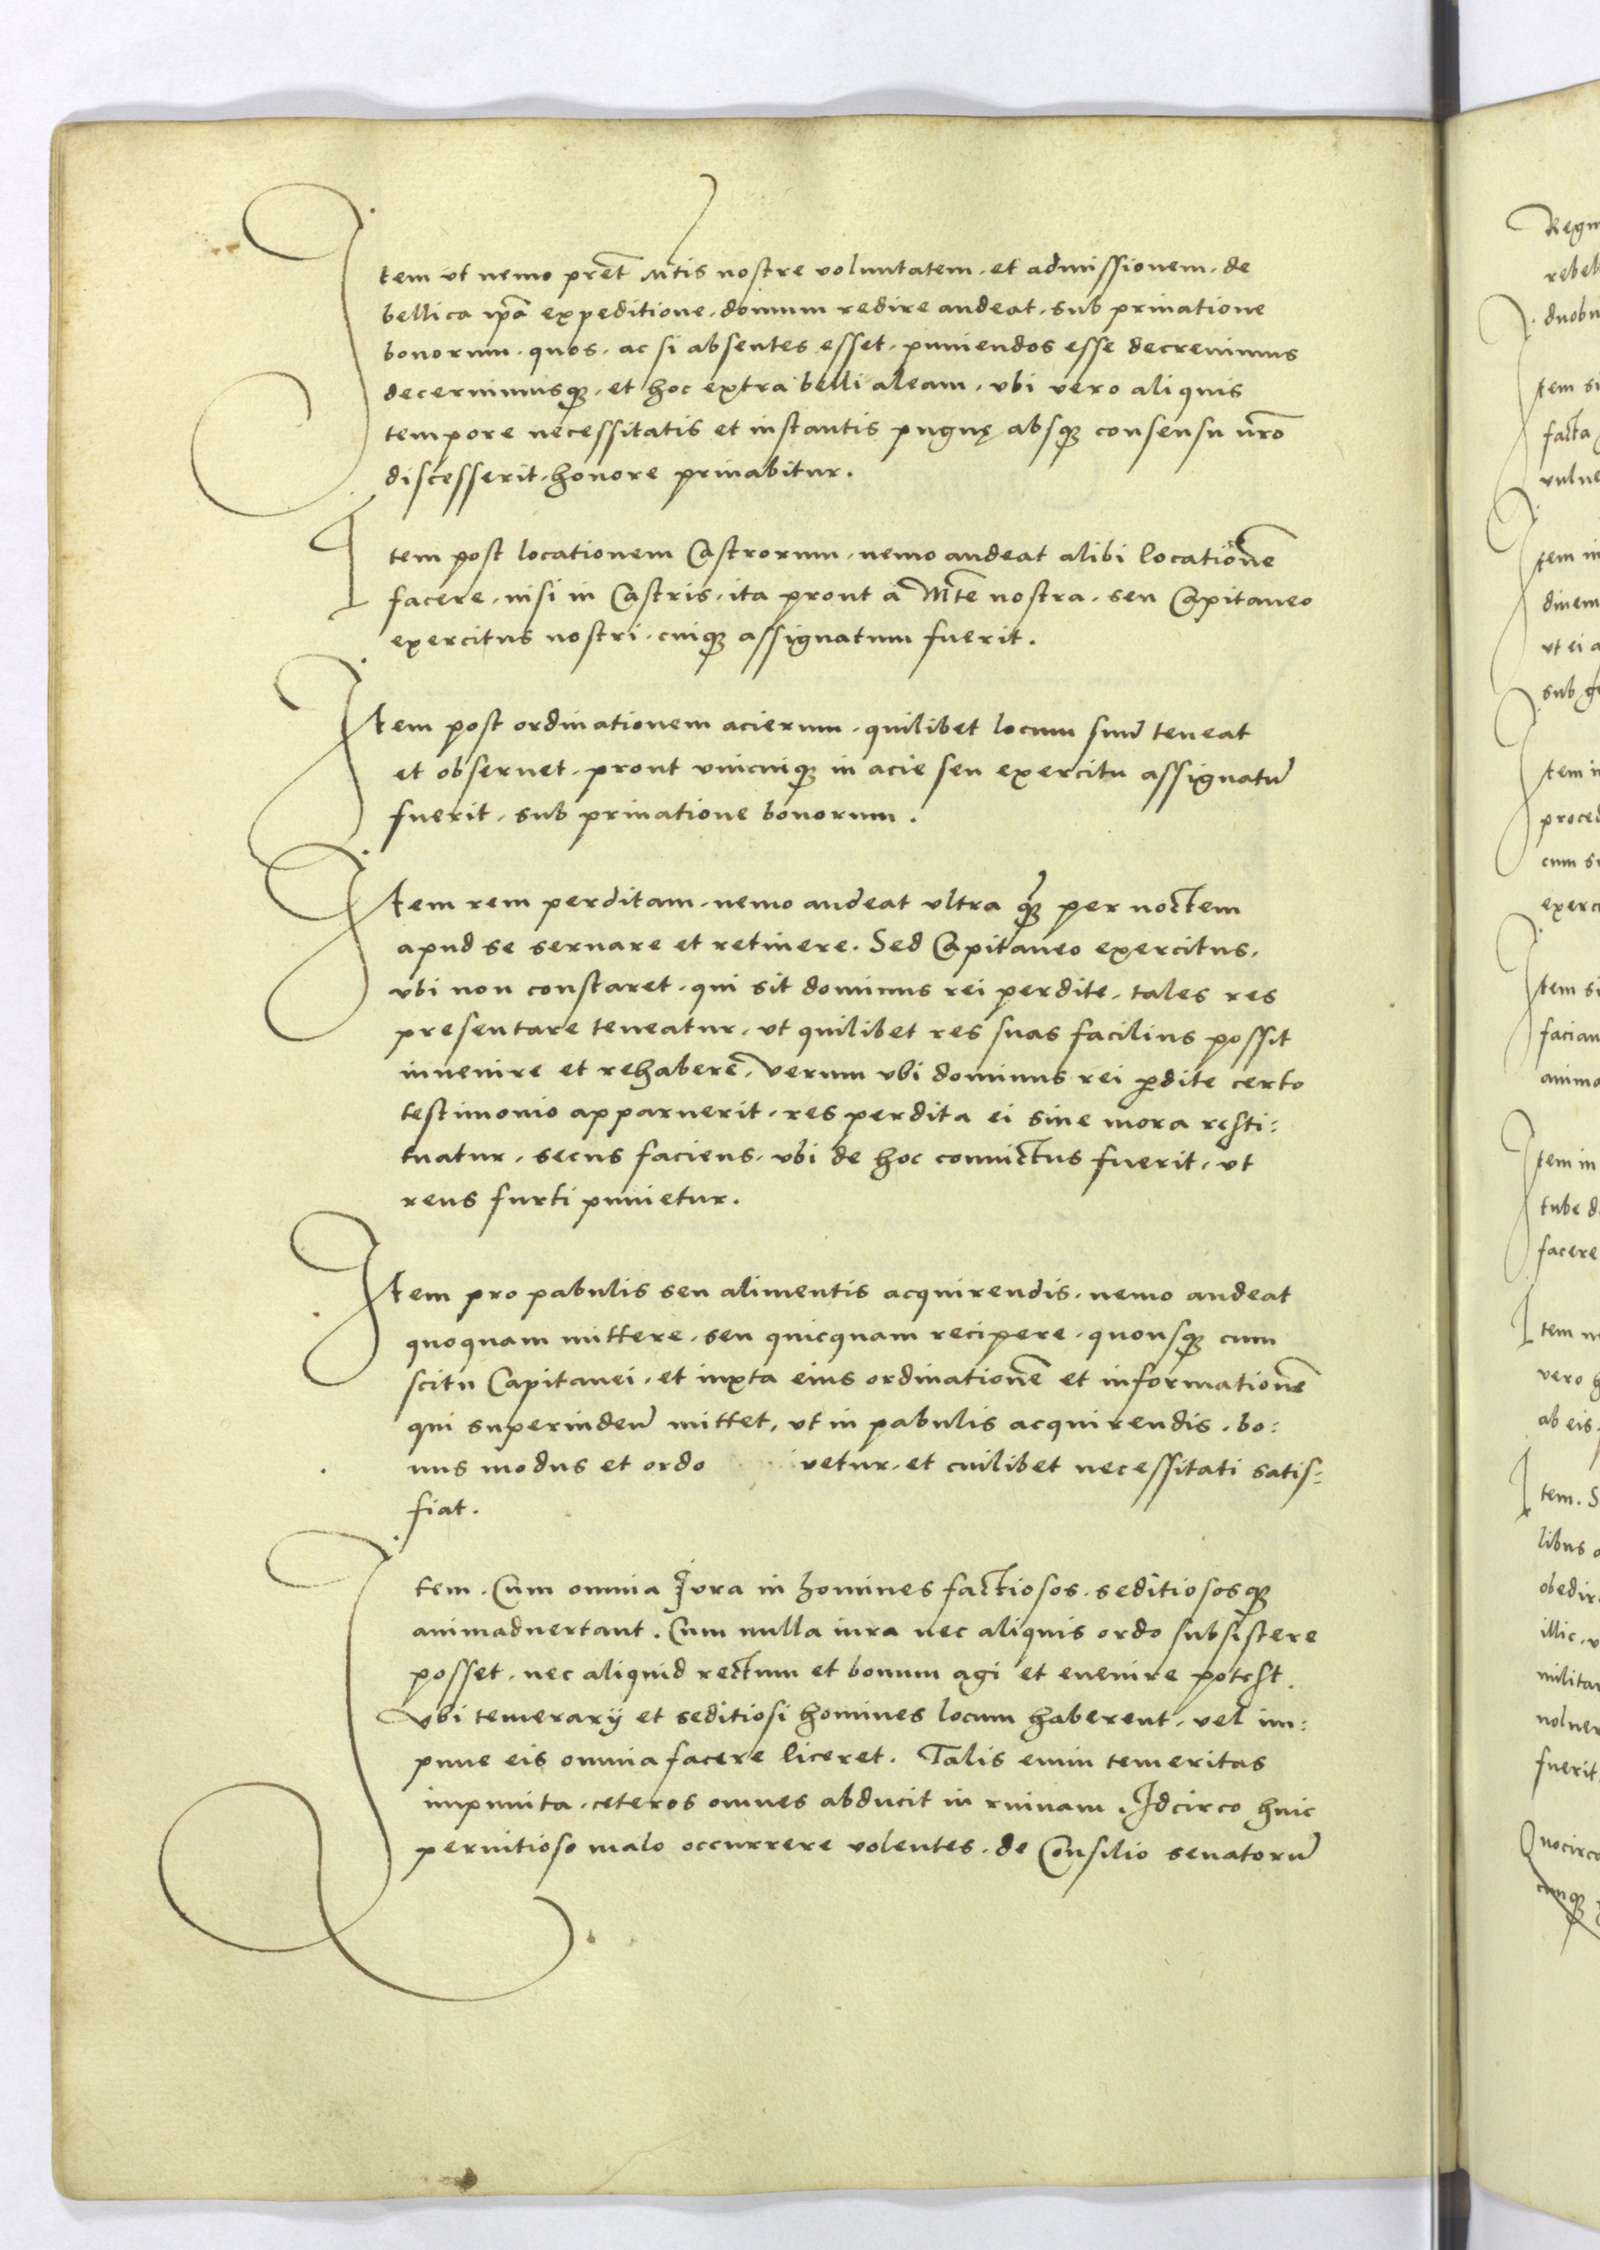 Item vt nemo pret̄ Mtis nostre voluntatem, et admissionem, de
bellica ip̄a expeditione, domum redire audeat, sub priuatione
bonorum, quos, ac si absentes esset, puniendos esse decreuimus
decernimusq̨, et hoc extra belli aleam, vbi vero aliquis
tempore necessitatis et instantis pugnę absq̨ consensu nr̄o
discesserit, honore priuabitur.
Item post locationem Castrorum, nemo audeat alibi locationē
facere, nisi in Castris, ita prout a Mte nostra, seu Capitaneo
exercitus nostri, cuiq̨ assignatum fuerit.
Item post ordinationem acierum, quilibet locum suū teneat
et obseruet, prout vnicuiq̨ in acie seu exercitu assignatū
fuerit, sub priuatione bonorum.
Item rem perditam, nemo audeat vltra q̄ per noctem
apud se seruare et retinere. Sed Capitaneo exercitus,
vbi non constaret, qui sit dominus rei perdite, tales res
presentare teneatur, vt quilibet res suas facilius possit
inuenire et rehabere, Verum vbi dominus rei p̄dite certo
testimonio apparuerit, res perdita ei sine mora resti:
tuatur, secus faciens, vbi de hoc conuictus fuerit, vt
reus furti punietur.
Item pro pabulis seu alimentis acquirendis, nemo audeat
quoquam mittere, seu quicquam recipere, quousq̨ cum
scitu Capitanei, et iuxta eius ordinationē et informationē
qui superindeū mittet, vt in pabulis acquirendis, bo:
nus modus et ordo uetur, et cuilibet necessitati satis:
fiat.
Item. Cum omnia Jura in homines factiosos, seditiososq̨
animaduertant. Cum nulla iura nec aliquis ordo subsistere
posset, nec aliquid rectum et bonum agi et euenire potest.
Vbi temerarij et seditiosi homines locum haberent, vel im:
pune eis omnia facere liceret. Talis enim temeritas
impunita, ceteros omnes abducit in ruinam. Idcirco huic
pernitioso malo occurrere volentes, de Consilio senatorū